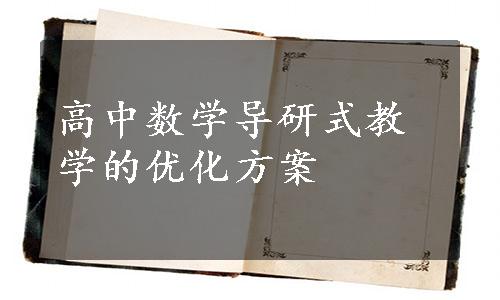 高中数学导研式教
学的优化方案